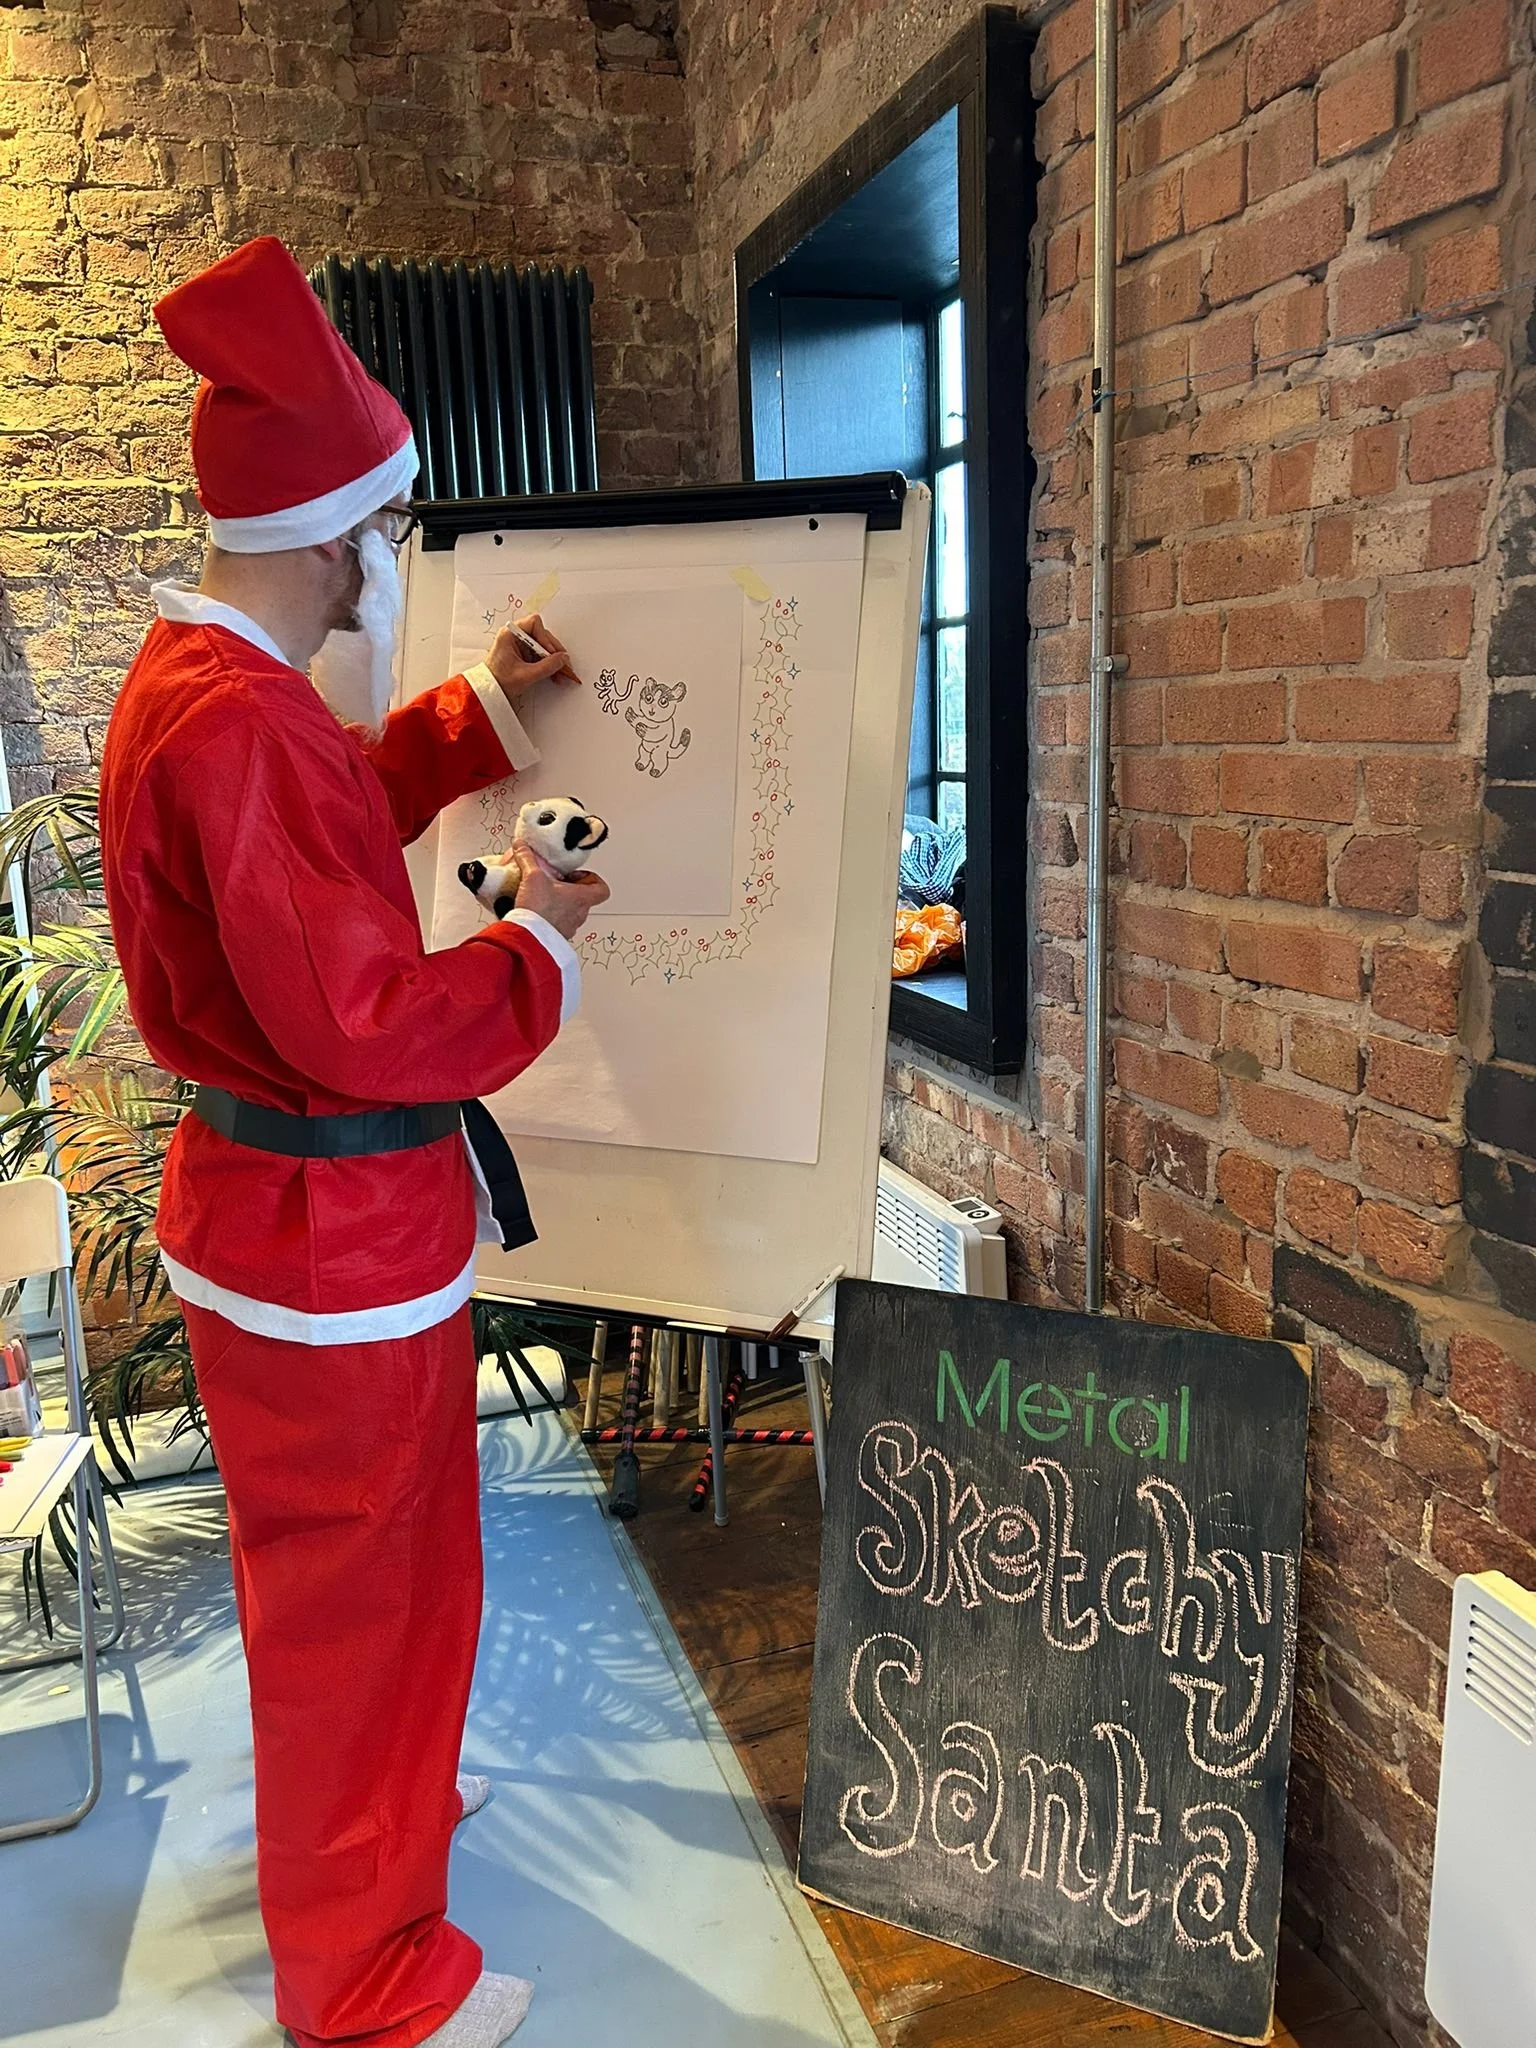 Metal
Sketchy
Santa